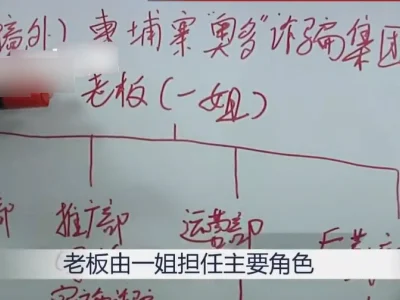 境外）柬埔寨"奥多"诈骗集团
老板（一姐）
部 推广部 运营部
老板由一姐担任主要角色